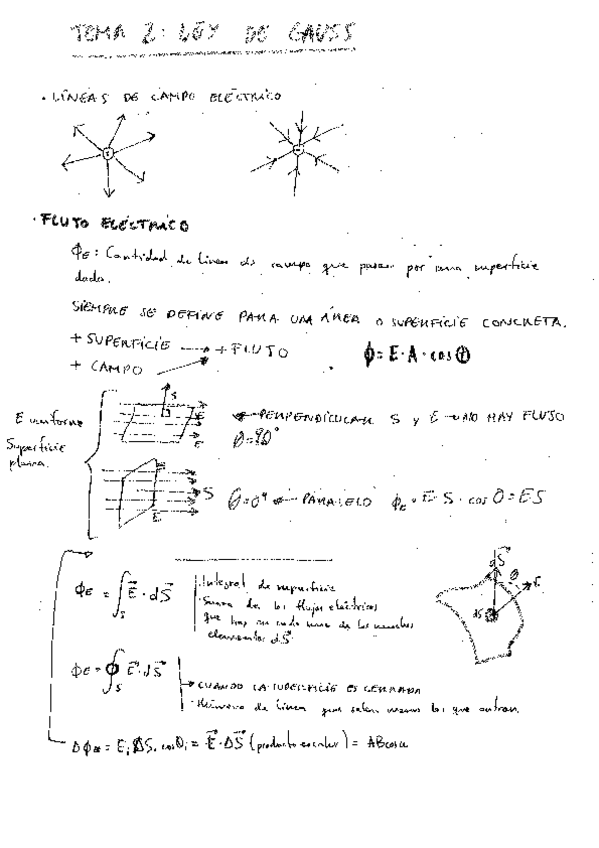 TEMA 2: LEY DE GAUSS
· LÍNEAS DE CAMPO ELÉCTRICO
+
−
· FLUJO ELÉCTRICO
ϕE: Cantidad de líneas de campo que pasan por una superficie
dada.
SIEMPRE SE DEFINE PARA UN ÁREA O SUPERFICIE CONCRETA.
+ SUPERFICIE → + FLUJO
+ CAMPO
ϕ = E · A · cos θ
E uniforme
Superficie
plana.
S
E
E
← PERPENDICULAR S y E → NO HAY FLUJO
θ = 90°
S
E
θ = 0° ← PARALELO ϕE = E · S · cos 0 = ES
ϕE = ∫S E⃗ · dS⃗
· Integral de superficie
· Suma de los flujos eléctricos
que hay en cada uno de los muchos
elementos dS⃗
dS⃗
θ
E
dS
ϕE = ∮S E⃗ · dS⃗
→ CUANDO LA SUPERFICIE ES CERRADA
· Número de líneas que salen menos los que entran.
Δϕ = Ei ΔSi cos θi = E⃗ · ΔS⃗ (producto escalar) = AB cos α